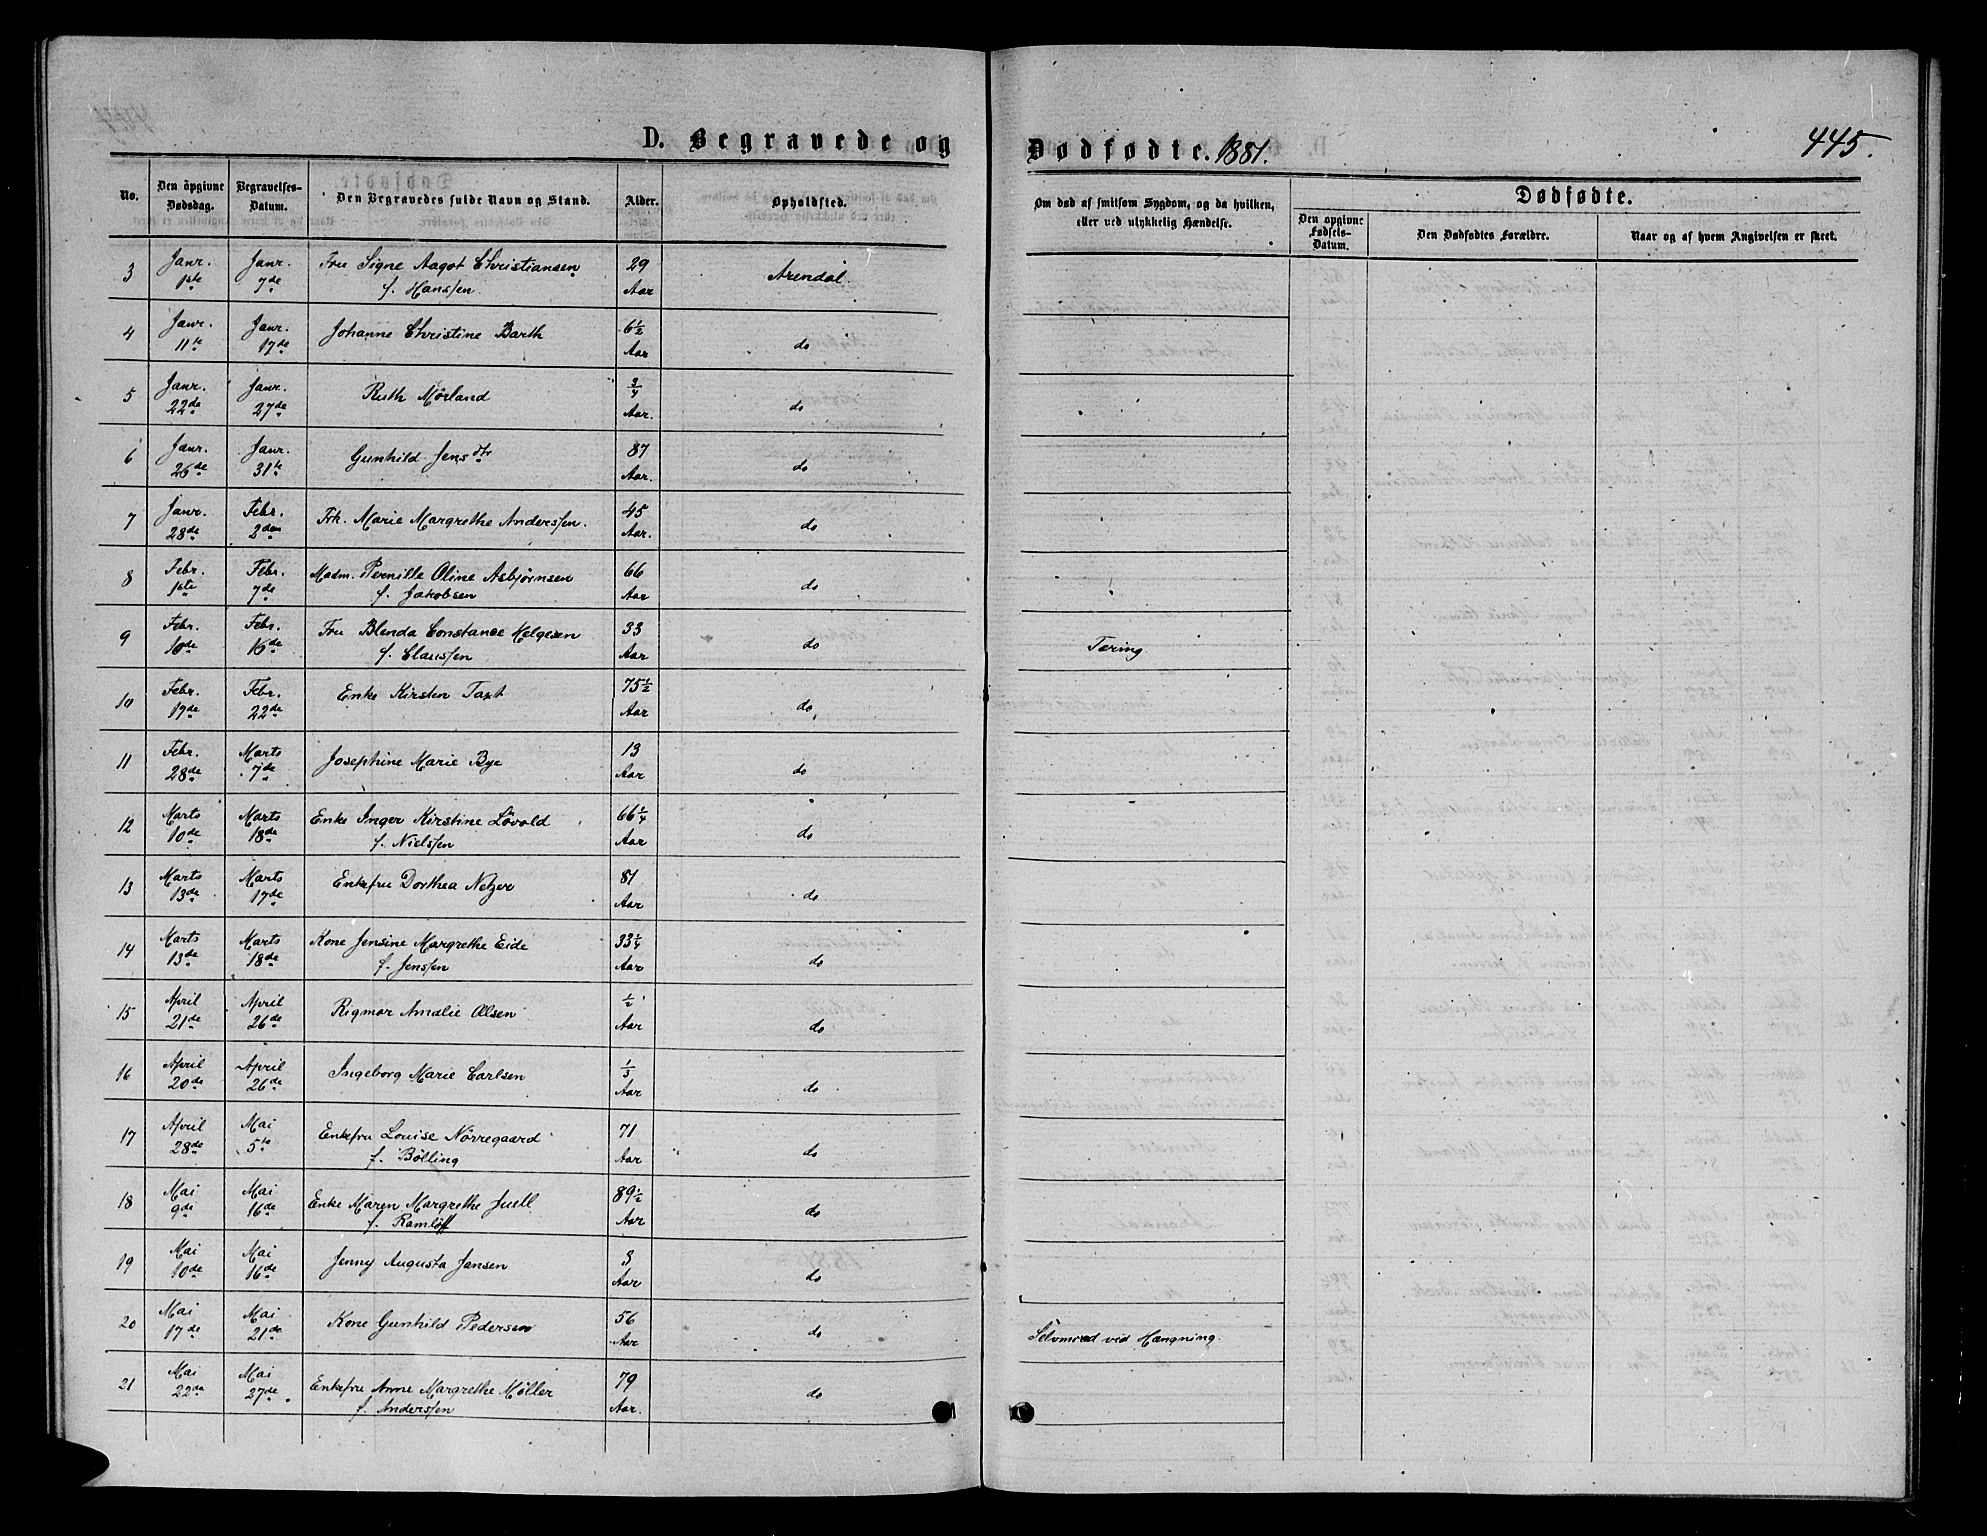 D. Begravede og Dødfødte. 1881.
445.
No.
Den opgivne Dødsdag.
Begravelses-Datum.
Den Begravedes fulde Navn og Stand.
Alder.
Opholdssted.
Om død af smitsom Sygdom, og da hvilken, eller ved ulykkelig Hændelse.
Dødfødte.
Den opgivne Fødsels-Datum.
Den Dødfødtes Forældre.
Naar og af hvem Angivelsen er skeet.
3 Janr. 1ste Janr. 7de Fru Signe Aagot Christiansen f. Hanssen. 29 Aar Arendal.
4 Janr. 11te Janr. 17de Johanne Christine Barth 6½ Aar do
5 Janr. 22de Janr. 27de Ruth Mörland ¾ Aar. do
6 Janr. 26de Janr. 31te Gunhild Jensdtr 87 Aar. do
7 Janr. 28de Febr. 2den Frk. Marie Margrethe Anderssen. 45 Aar. do
8 Febr. 1ste Febr. 7de Madm. Pernille Oline Asbjørnsen f. Jakobsen 66 Aar do
9 Febr. 10de Febr. 16de Fru Blenda Constance Helgesen f. Claussen 33 Aar do Tæring
10 Febr. 17de Febr. 22de Enke Kirsten Taxt 75½ Aar do
11 Febr. 28de Marts 7de Josephine Marie Bye 13 Aar do
12 Marts 10de Marts 18de Enke Inger Kirstine Lövold f. Nielssen 66¼ Aar do
13 Marts 13de Marts 17de Enkefru Dorthea Netzer 81 Aar do
14 Marts 13de Marts 18de Kone Jensine Margrethe Eide f. Jenssen 33¼ Aar do
15 April 21de April 26de Rigmor Amalie Olsen ½ Aar do
16 April 20de April 26de Ingeborg Marie Carlsen ⅓ Aar do
17 April 28de Mai 5te Enkefru Louise Nörregaard f. Bölling 71 Aar do
18 Mai 9de Mai 16de Enke Maren Margrethe Juell f. Ramlöff 89½ Aar do
19 Mai 10de Mai 16de Jenny Augusta Jansen 3 Aar do
20 Mai 17de Mai 21de Kone Gunhild Pedersen 56 Aar do Selvmord ved Hængning.
21 Mai 22de Mai 27de Enkefru Anne Margrethe Möller f. Anderssen 79 Aar. do